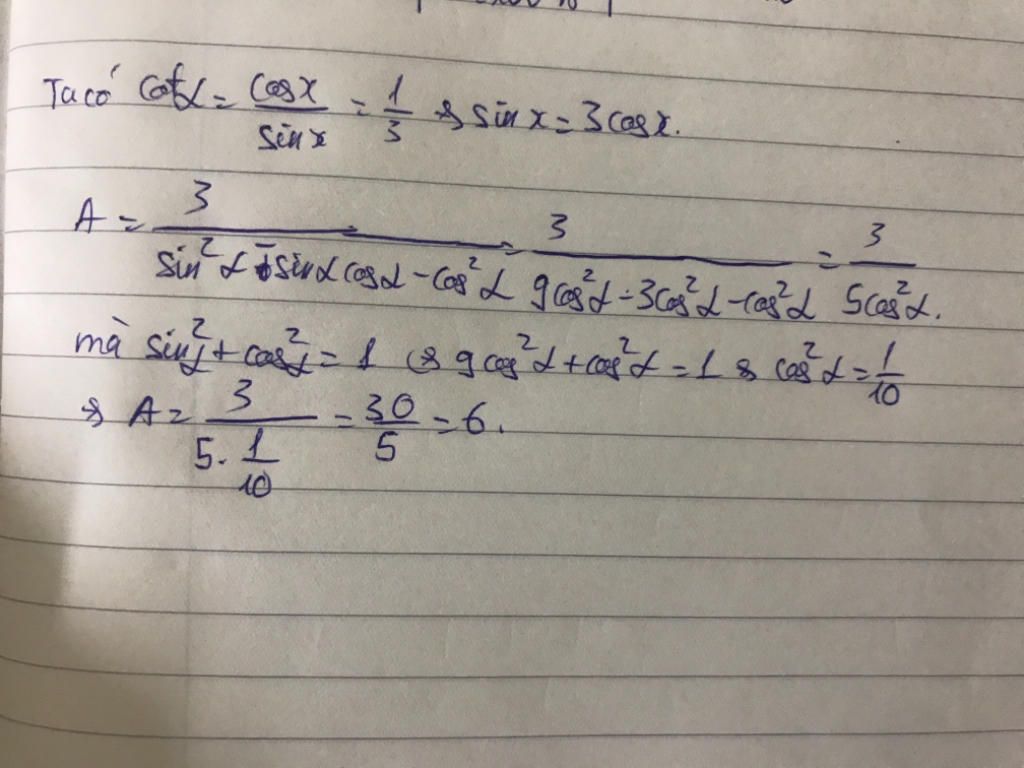 Ta có cotα = cosx/sinx = 1/3 ⇔ sinx = 3cosx.
A = 3/(sin²α - sinα cosα - cos²α) = 3/(9cos²α - 3cos²α - cos²α) = 3/(5cos²α).
mà sin²α + cos²α = 1 ⇔ 9cos²α + cos²α = 1 ⇔ cos²α = 1/10
⇔ A = 3/(5 . 1/10) = 30/5 = 6.